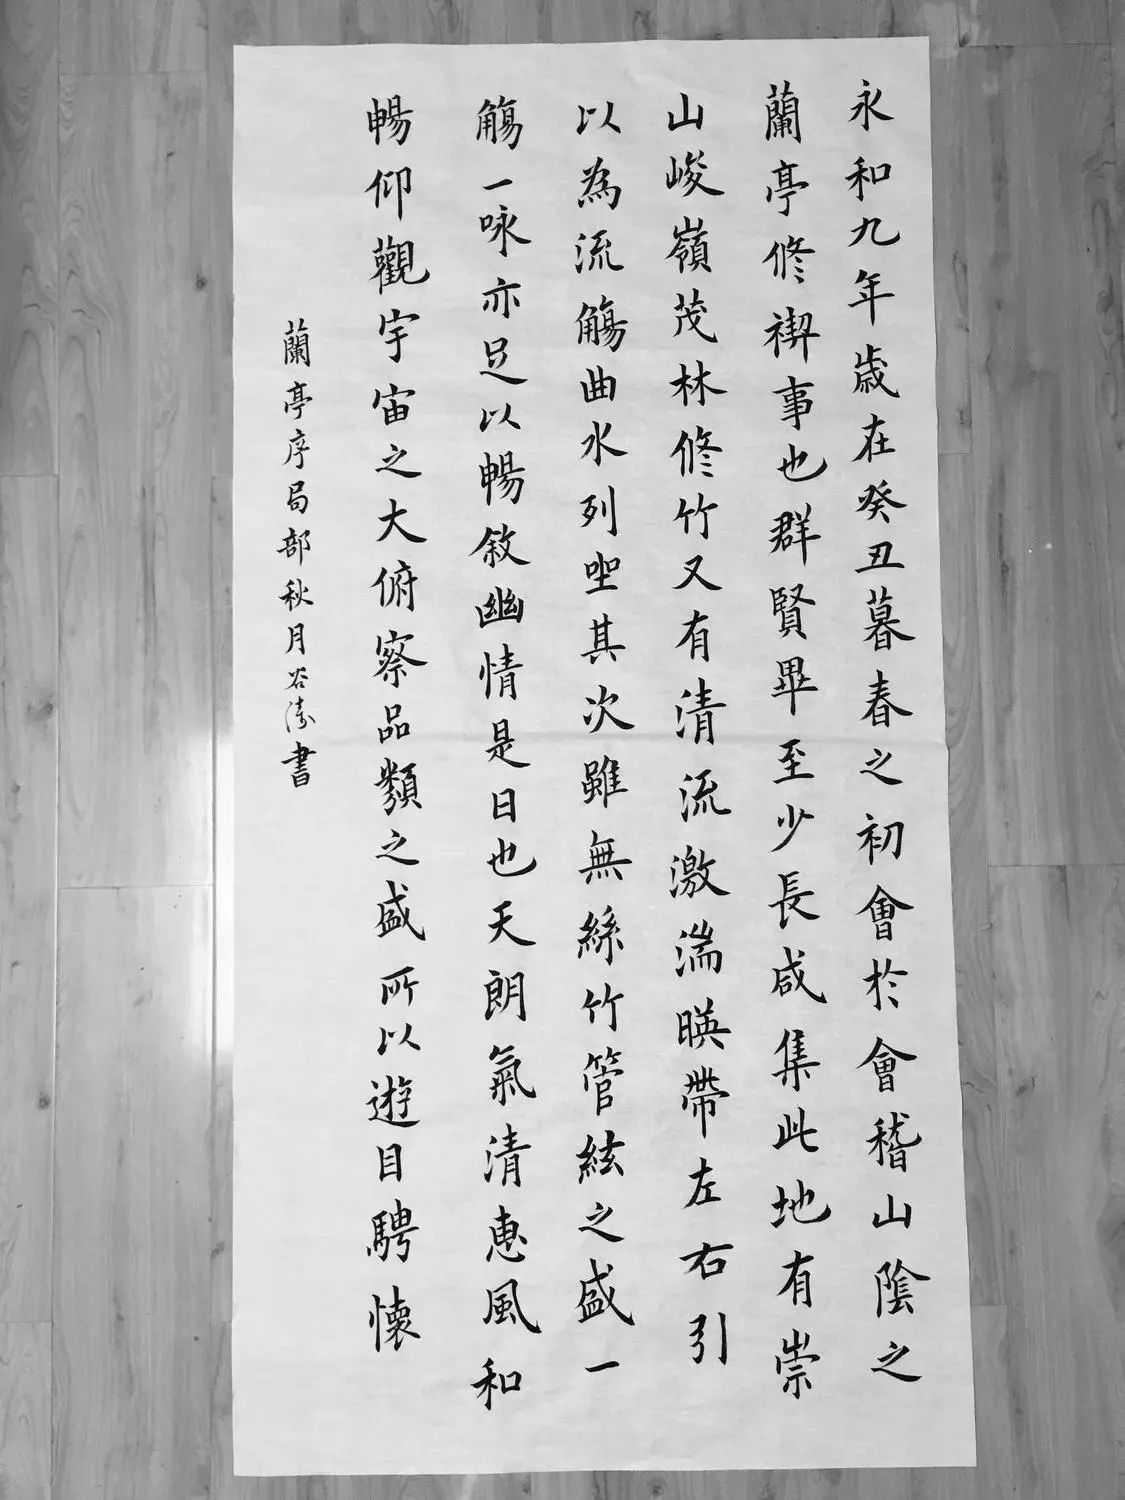 永和九年歲在癸丑暮春之初會於會稽山陰之
蘭亭修禊事也群賢畢至少長咸集此地有崇
山峻嶺茂林修竹又有清流激湍暎帶左右引
以為流觴曲水列坐其次雖無絲竹管絃之盛一
觴一咏亦足以暢敘幽情是日也天朗氣清惠風和
暢仰觀宇宙之大俯察品類之盛所以遊目騁懷
蘭亭序局部秋月谷濤書